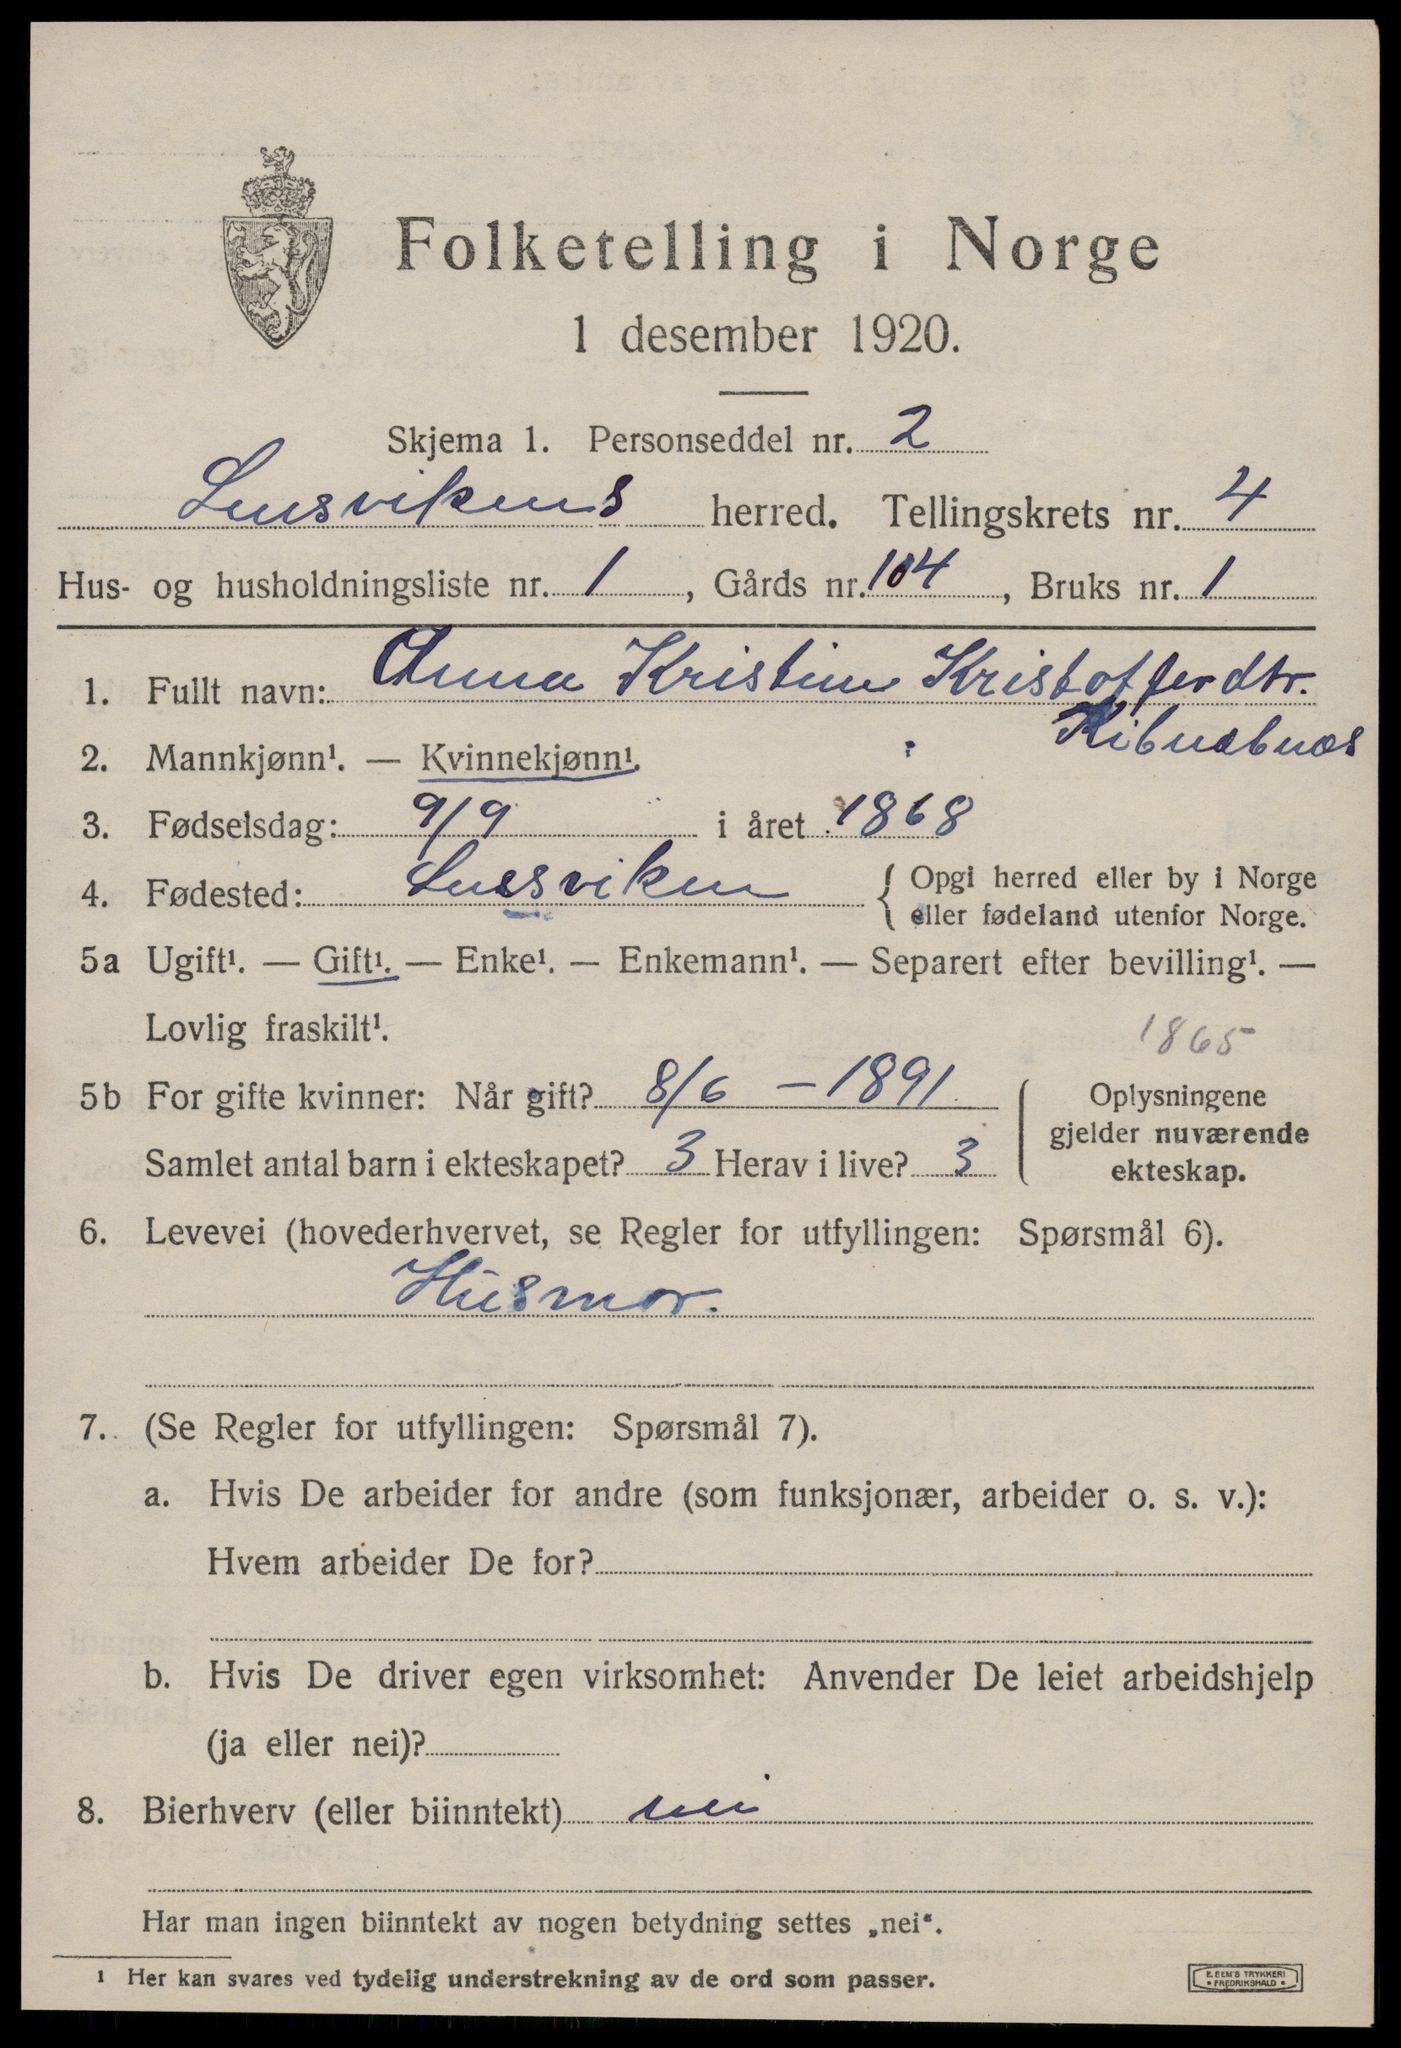 Folketelling i Norge
1 desember 1920.
Skjema 1. Personseddel nr. 2
Lensvikens herred. Tellingskrets nr. 4
Hus- og husholdningsliste nr. 1, Gårds nr. 104, Bruks nr. 1
1. Fullt navn: Anna Kristine Kristofferdtr.
2. Mannkjønn¹. — Kvinnekjønn¹.
3. Fødselsdag: 9/9 i året 1868
4. Fødested: Lensviken { Opgi herred eller by i Norge
eller fødeland utenfor Norge.
5a Ugift¹. — Gift¹. — Enke¹. — Enkemann¹. — Separert efter bevilling¹. —
Lovlig fraskilt¹.
1865
5b For gifte kvinner: Når gift? 8/6 – 1891
Samlet antal barn i ekteskapet? 3 Herav i live? 3
{ Oplysningene
gjelder nuværende
ekteskap.
6. Levevei (hovederhvervet, se Regler for utfyllingen: Spørsmål 6).
Husmor.
7. (Se Regler for utfyllingen: Spørsmål 7).
a. Hvis De arbeider for andre (som funksjonær, arbeider o. s. v.):
Hvem arbeider De for?
b. Hvis De driver egen virksomhet: Anvender De leiet arbeidshjelp
(ja eller nei)?
8. Bierhverv (eller biinntekt) nei
Har man ingen biinntekt av nogen betydning settes „nei“.
¹ Her kan svares ved tydelig understrekning av de ord som passer.
E. SEM'S TRYKKERI
* FREDRIKSHALD *